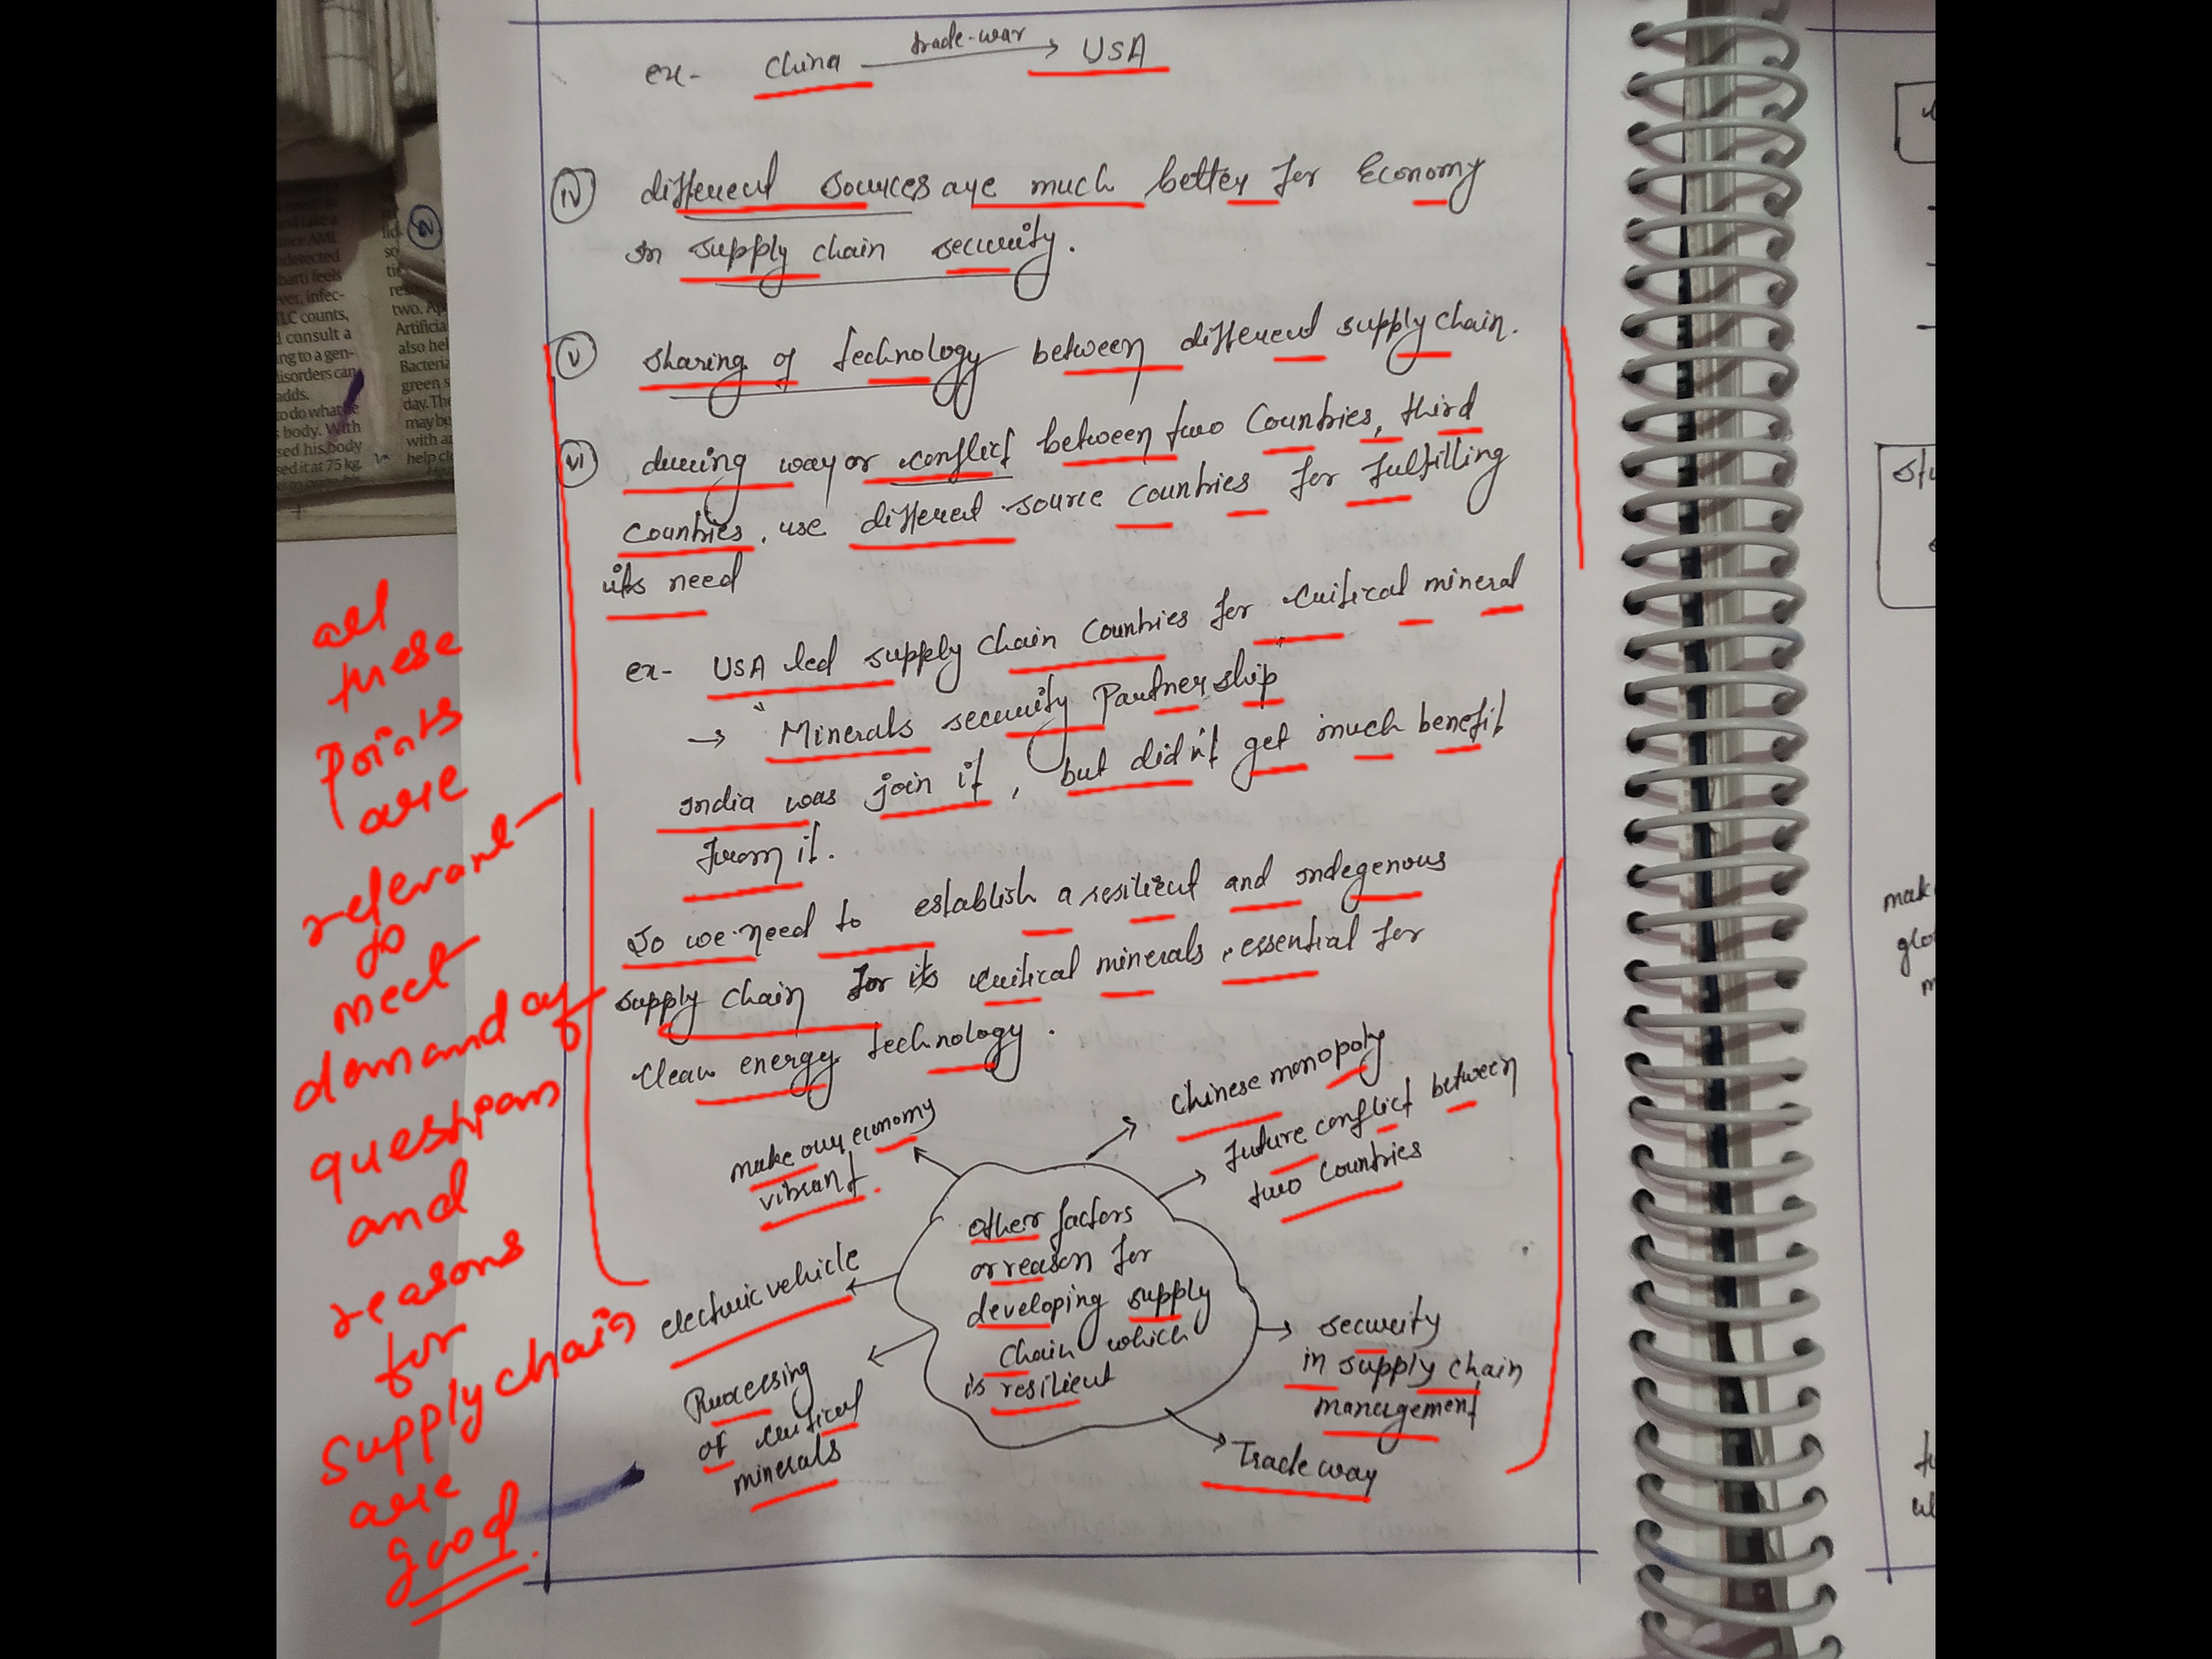 ex- China trade-war → USA
iv different sources are much better for Economy
in supply chain security.
v sharing of technology between different supply chain.
vi during war or conflict between two Countries, third
Countries, use different source countries for fulfilling
its need
ex- USA led supply chain Countries for critical mineral
→ "Minerals security Partnership"
india was join it, but didn't get much benefit
from it.
So we need to establish a resilient and indegenous
supply chain for its critical minerals, essential for
clean energy technology.
Chinese monopoly
future conflict between
two countries
security
in supply chain
management
Trade war
make our economy
vibrant.
electric vehicle
Processing
of critical
minerals
other factors
or reason for
developing supply
chain which
is resilient
all
these
points
are
relevant
to
meet
demand of
question
and
reasons
for
supply chain
are
good.
and take a
ince AML
detected
barti feels
ver, infec-
LC counts,
consult a
ng to a gen-
disorders can
adds.
to do what
body. With
sed his body
sed it at 75 kg.
two. Ap
Artificia
also hel
Bacteria
green s
day. The
may be
with a
help cl
make
glo